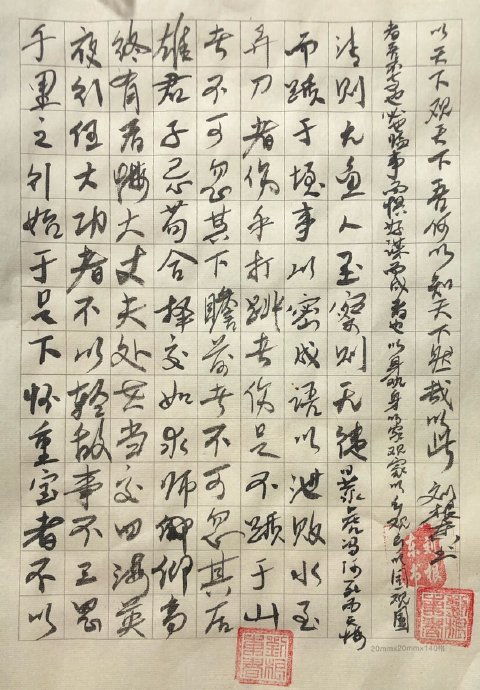 千里之行始于足下怀重宝者不以
夜行任大功者不以轻敌事不三思
终有后悔大丈夫处世当交四海英
雄君子忌苟合择交如求师仰高
者不可忽其下瞻前者不可忽其后
弄刀者伤手打跳者伤足不踬于山
而踬于垤事以密成语以泄败水至
清则无鱼人至察则无徒暴虎冯河死而无悔
者吾不与也必也临事而惧好谋而成者也以身观身以家观家以乡观乡以国观国
以天下观天下吾何以知天下然哉以此 刘
20mm×20mm×140格